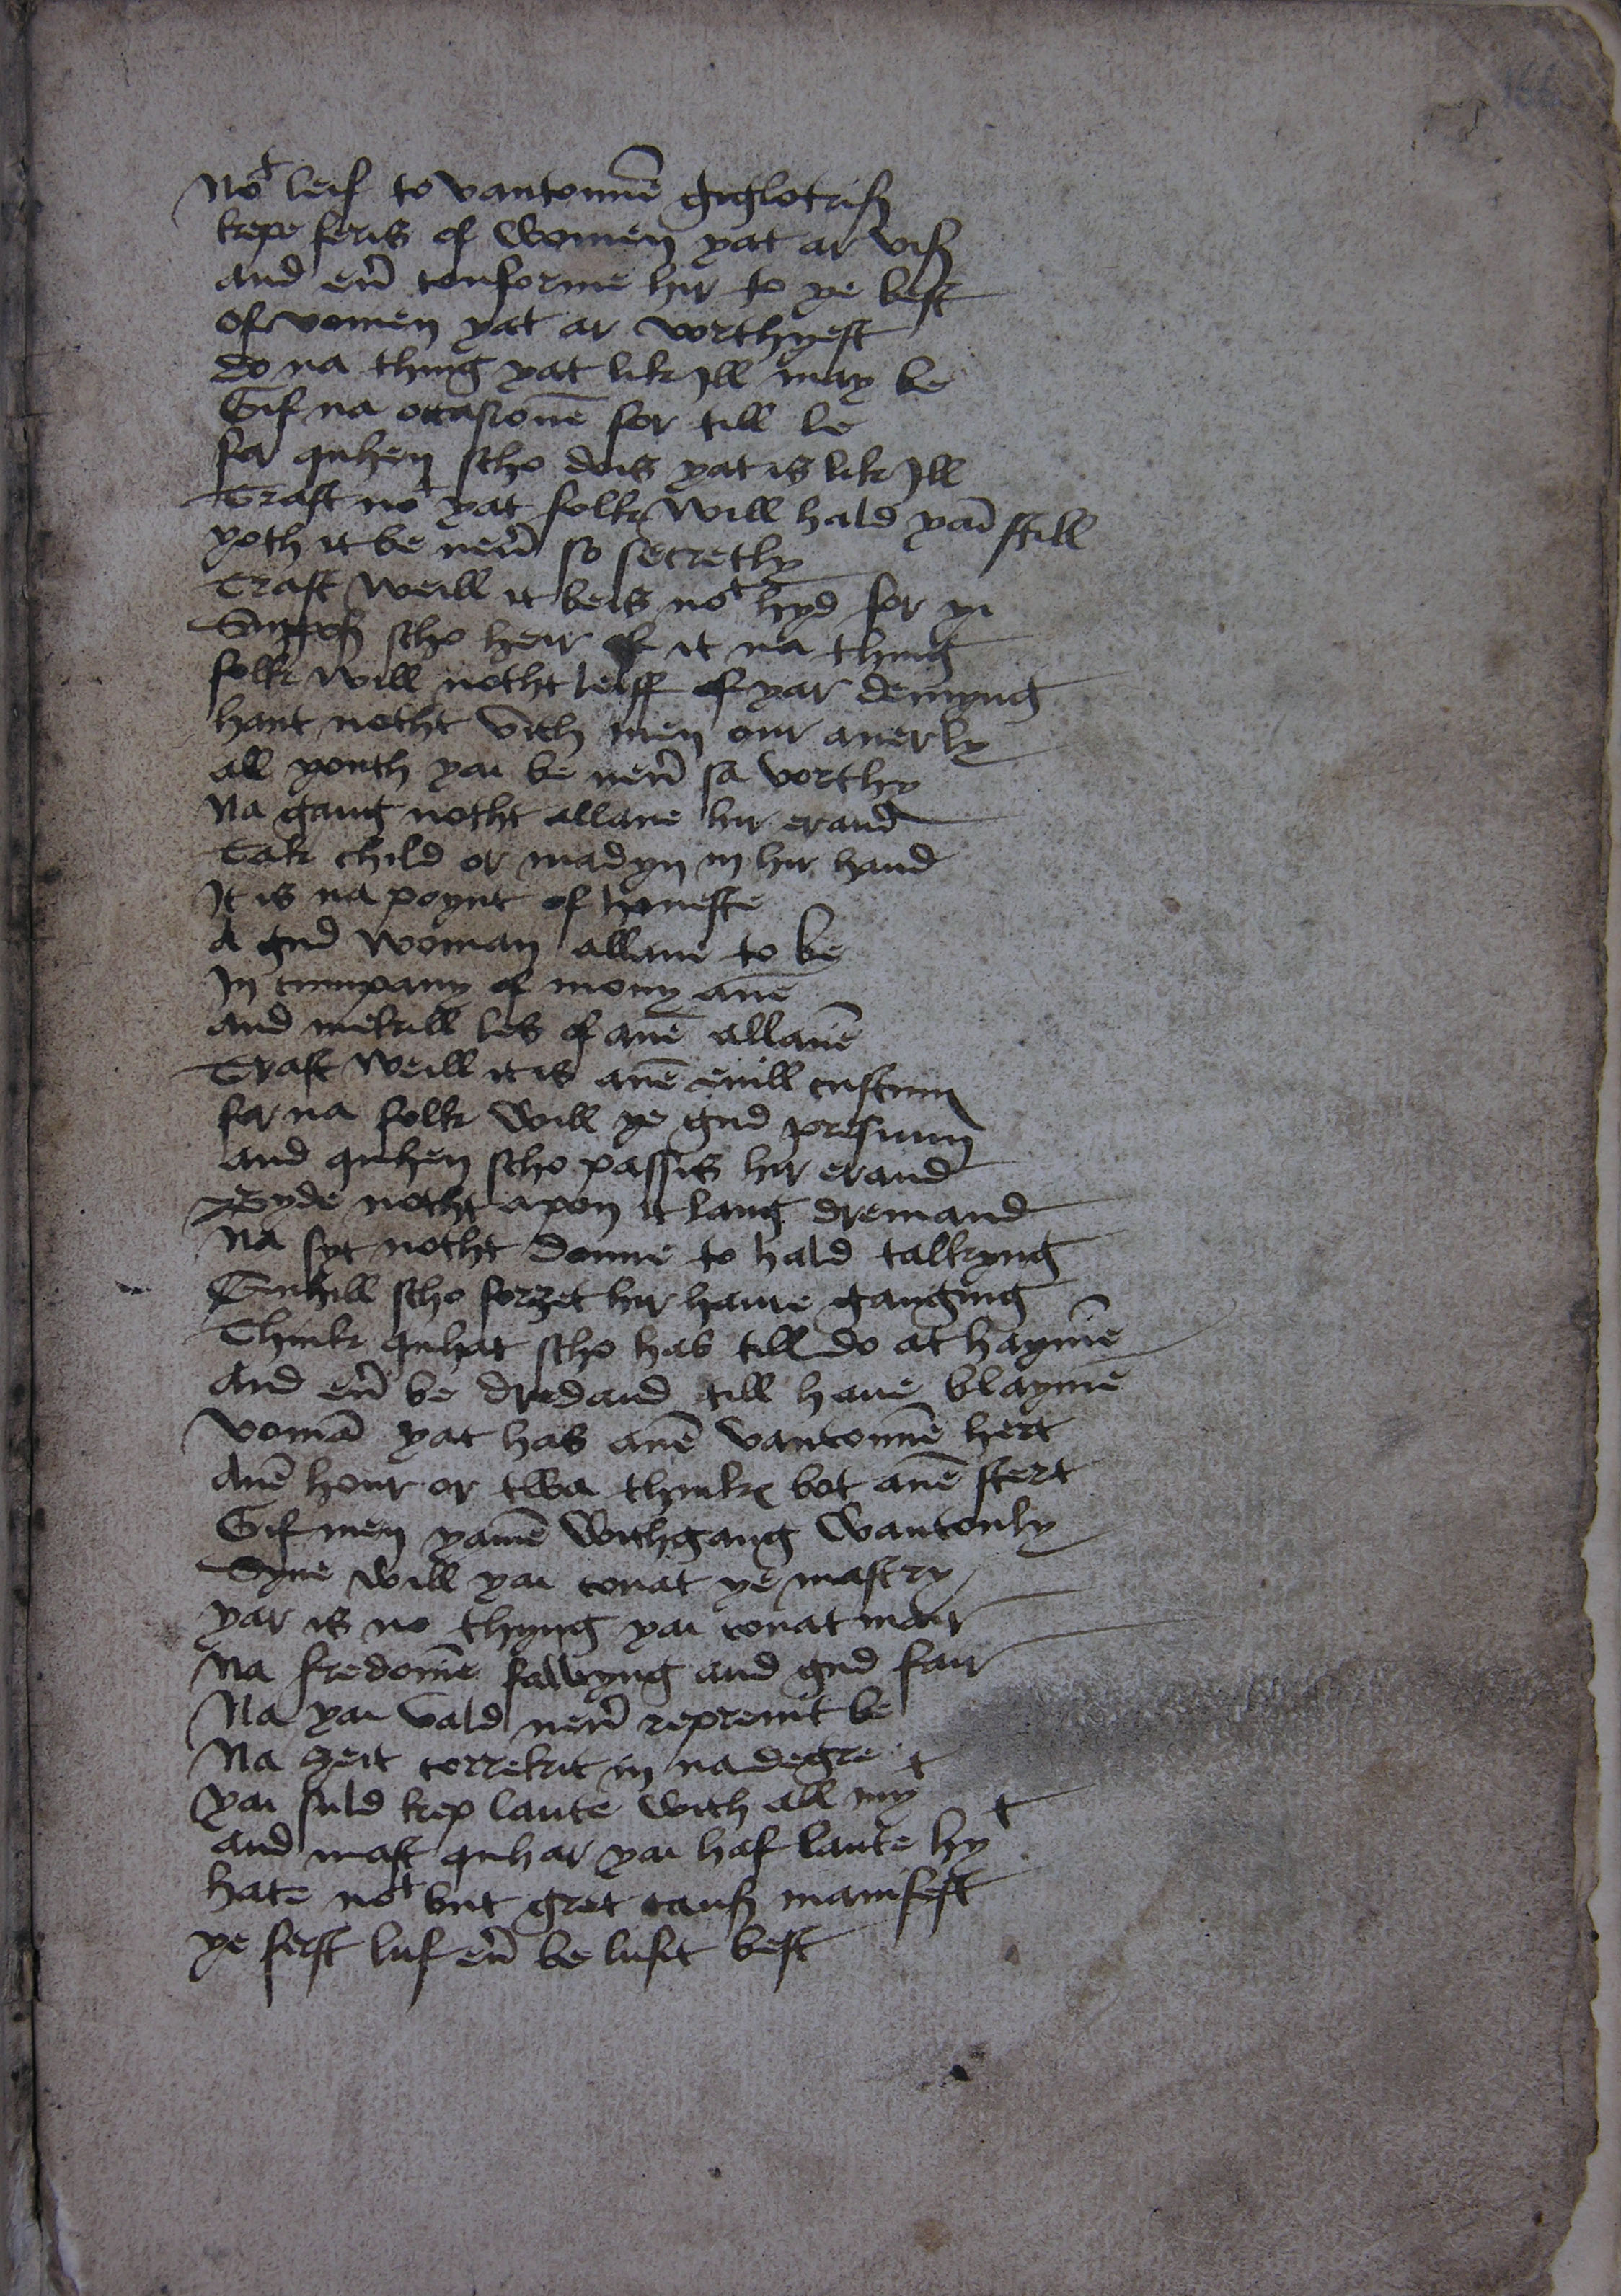 not leif to vantonnē giglotriß
kepe feris of women yat ar viß
and eũ conforme hir to ye best
of vomen yat ar worthyest
do na thing yat lik Ill may be
Gif na occasionē for till le
for quhen scho dois yat is lik Ill
Trast not yat folk will hald yaĩ still
yoth it be neũ so secretly
Trast weill it beis not hyd for yi
Suppoß scho heir of it na thing
folk will notht leiff of yar demyng
hant notht vith men our anerly
all youth yai be neũ sa vorthy
Na gang notht allane hir erand
Tak child or madyn in hir hand
It is na poynt of honeste
A gud woman allane to be
In cumpany of mony anē
and mekill les of anē allanē
Trast weill it is anē euill custum
for na folk will ye gud presum
and quhen scho passis hir erand
Byde notht apon it lang dremand
Na syt notht doune to hald talkyng
Quhill scho forȝet hir hame ganging
Think quhat scho has till do at haymē
And eũ be dredand till haue blaymē
vomā yat has anē vantonnē hert
Anē hour or twa think bot anē stert
Gif men yamē withgang wantonly
Syne will yai couat ye mastry
yar is no thyng yai couat mair
Na fredomē fallowyng and gud fair
Na yai vald neũ repreuit be
Na ȝeit correkit in na degre
yai suld kep laute with all myt
and mast quhar yai haf laute hyt
hate not but gret cauß manifest
ye ferst luf eũ be lufit best